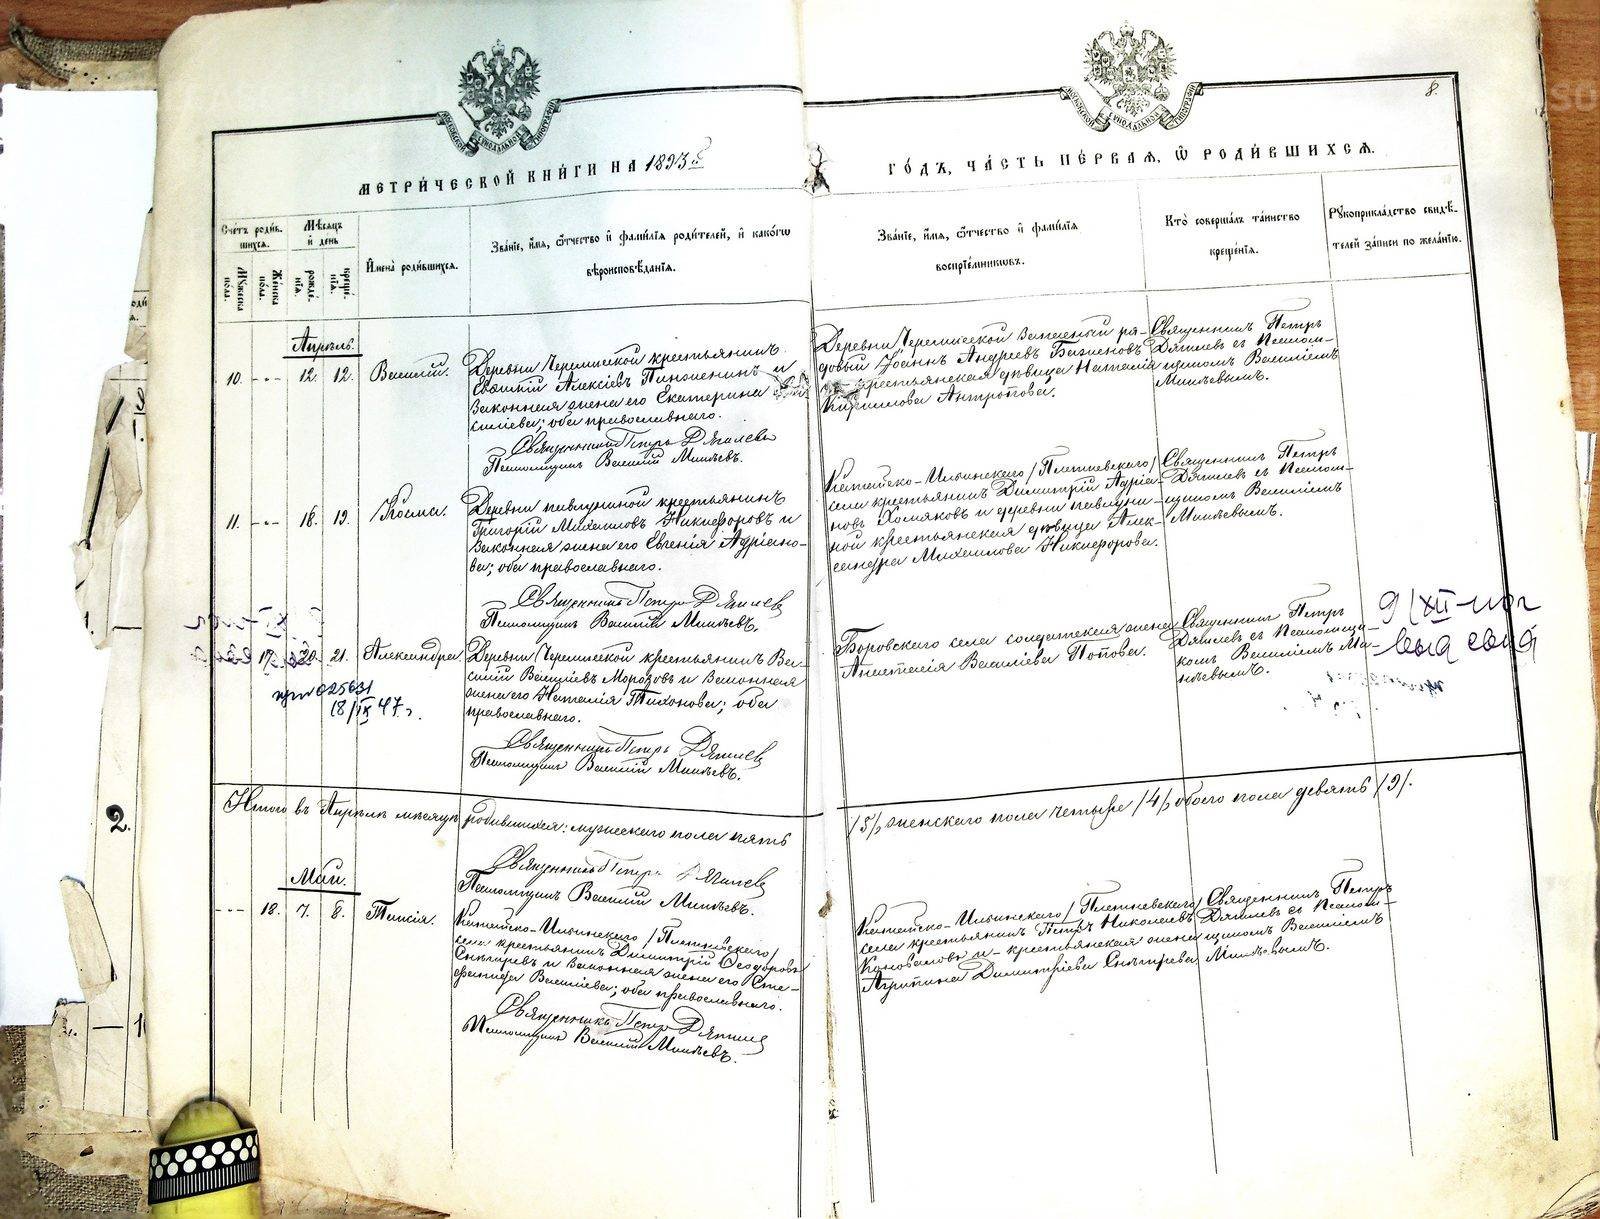 МОСКОВСКОЙ СѴНОДАЛЬНОЙ ТИПОГРАФІИ
МОСКОВСКОЙ СѴНОДАЛЬНОЙ ТИПОГРАФІИ
8.
МЕТРИ́ЧЕСКОЙ КНИ́ГИ НА 1893й
ГО́ДЪ, ЧА́СТЬ ПЕ́РВАЯ, Ѡ҆ РОДИ́ВШИХСЯ.
Сче́тъ роди́в-
шихся.
Му́жеска по́ла.
Же́нска по́ла.
Мѣ́сяцъ и҆ де́нь
рожде́-нія.
креще́-нія.
И҆мена̀ роди́вшихся.
Зва́ніе, и҆́мя, ѻ҆́тчество и҆ фами́лія роди́телей, и҆ како́гѡ
вѣроисповѣ́данія.
Зва́ніе, и҆́мя, ѻ҆́тчество и҆ фами́лія
воспріе́мниковъ.
Кто̀ соверша́лъ та́инство
креще́нія.
Рукоприкла́дство свидѣ́-
телей за́писи по жела́нію.
Апрѣль.
10. - - - 12. 12. Василій.
Деревни Черемисской крестьянинъ
Евѳимій Алексіевъ Пинженинъ и
законная жена его Екатерина Ва-
силіева; оба православнаго.
Священникъ Петръ Дягилевъ
Псаломщикъ Василій Михѣевъ.
Деревни Черемисской запасный ря-
довый Іоаннъ Андреевъ
крестьянская дѣвица Наталія
Кириллова Антропова.
Священникъ Петръ
Дягилевъ съ псалом-
щикомъ Василіемъ
Михѣевымъ.
11. - - - 18. 19. Косма.
Деревни Певунной крестьянинъ
Григорій Михаиловъ Никифоровъ и
законная жена его Евгенія Адріано-
ва; оба православнаго.
Священникъ Петръ Дягилевъ
Псаломщикъ Василій Михѣевъ.
Китайско-Ильинскаго /Плетневскаго/
села крестьянинъ Димитрій Адріа-
новъ Хомяковъ и деревни Певунн-
ной крестьянская дѣвица Алек-
сандра Михаилова Никифорова.
Священникъ Петръ
Дягилевъ съ псалом-
щикомъ Василіемъ
Михѣевымъ.
20. 21. Александра.
18/IX 47 г.
Деревни Черемисской крестьянинъ Ва-
силій Василіевъ Морозовъ и законная
жена его Наталія Тихонова; оба
православнаго.
Священникъ Петръ Дягилевъ
Псаломщикъ Василій Михѣевъ.
Боровскаго села солдатская жена
Анастасія Василіева Попова.
Священникъ Петръ
Дягилевъ съ псаломщи-
комъ Василіемъ Ми-
хѣевымъ.
9/XII
Итого въ Апрѣлѣ мѣсяцѣ родившихся: мужескаго пола пять
/5/, женскаго пола четыре /4/, обоего пола девять /9/.
Священникъ Петръ Дягилевъ
Псаломщикъ Василій Михѣевъ.
Май.
- - - 18. 7. 8. Таисія.
Китайско-Ильинскаго /Плетневскаго/
села крестьянинъ Димитрій Ѳеодоровъ
Снѣгиревъ и законная жена его Сте-
фанида Василіева; оба православнаго.
Священникъ Петръ Дягилевъ
Псаломщикъ Василій Михѣевъ.
Китайско-Ильинскаго /Плетневскаго/
села крестьянинъ Петръ Николаевъ
Коноваловъ и крестьянская жена
Агрипина Димитріева Снѣгирева
Священникъ Петръ
Дягилевъ съ псалом-
щикомъ Василіемъ
Михѣевымъ.
2.